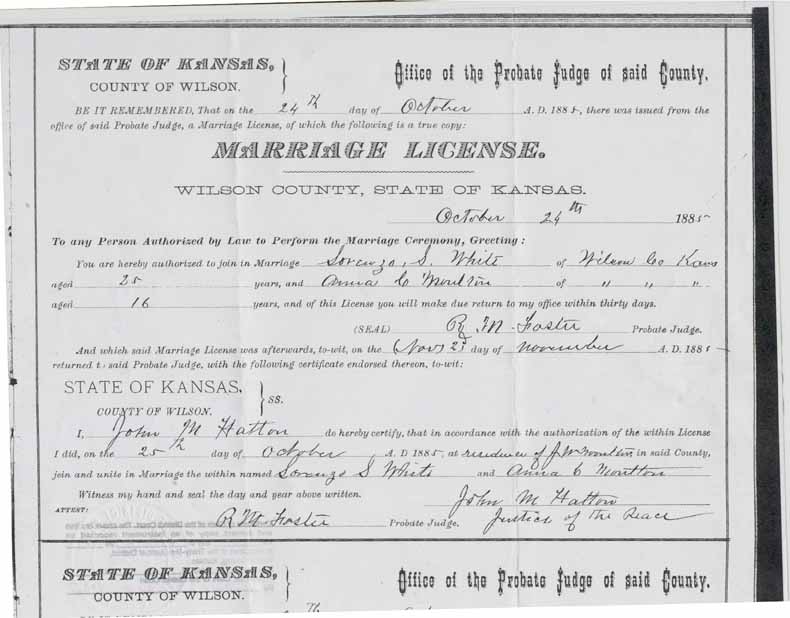 STATE OF KANSAS,
COUNTY OF WILSON.
Office of the Probate Judge of said County.
BE IT REMEMBERED, That on the 24th day of October A. D. 1885, there was issued from the
office of said Probate Judge, a Marriage License, of which the following is a true copy:
MARRIAGE LICENSE.
WILSON COUNTY, STATE OF KANSAS.
October 24th 1885
To any Person Authorized by Law to Perform the Marriage Ceremony, Greeting:
You are hereby authorized to join in Marriage Lorenzo, S. White of Wilson Co Kans
aged 25 years, and Anna C Moulton of " " "
aged 16 years, and of this License you will make due return to my office within thirty days.
(SEAL) R M Foster Probate Judge.
And which said Marriage License was afterwards, to-wit, on the (Nov) 2d day of November A. D. 1885
returned to said Probate Judge, with the following certificate endorsed thereon, to-wit:
STATE OF KANSAS,
COUNTY OF WILSON.
ss.
I, John M Hatton do hereby certify, that in accordance with the authorization of the within License
I did, on the 25th day of October A. D 1885, at residence of J. W Moulton in said County,
join and unite in Marriage the within named Lorenzo S White and Anna C Moulton
Witness my hand and seal the day and year above written. John M Hatton
ATTEST: R M Foster Probate Judge. Justice of the Peace
STATE OF KANSAS,
COUNTY OF WILSON.
Office of the Probate Judge of said County.